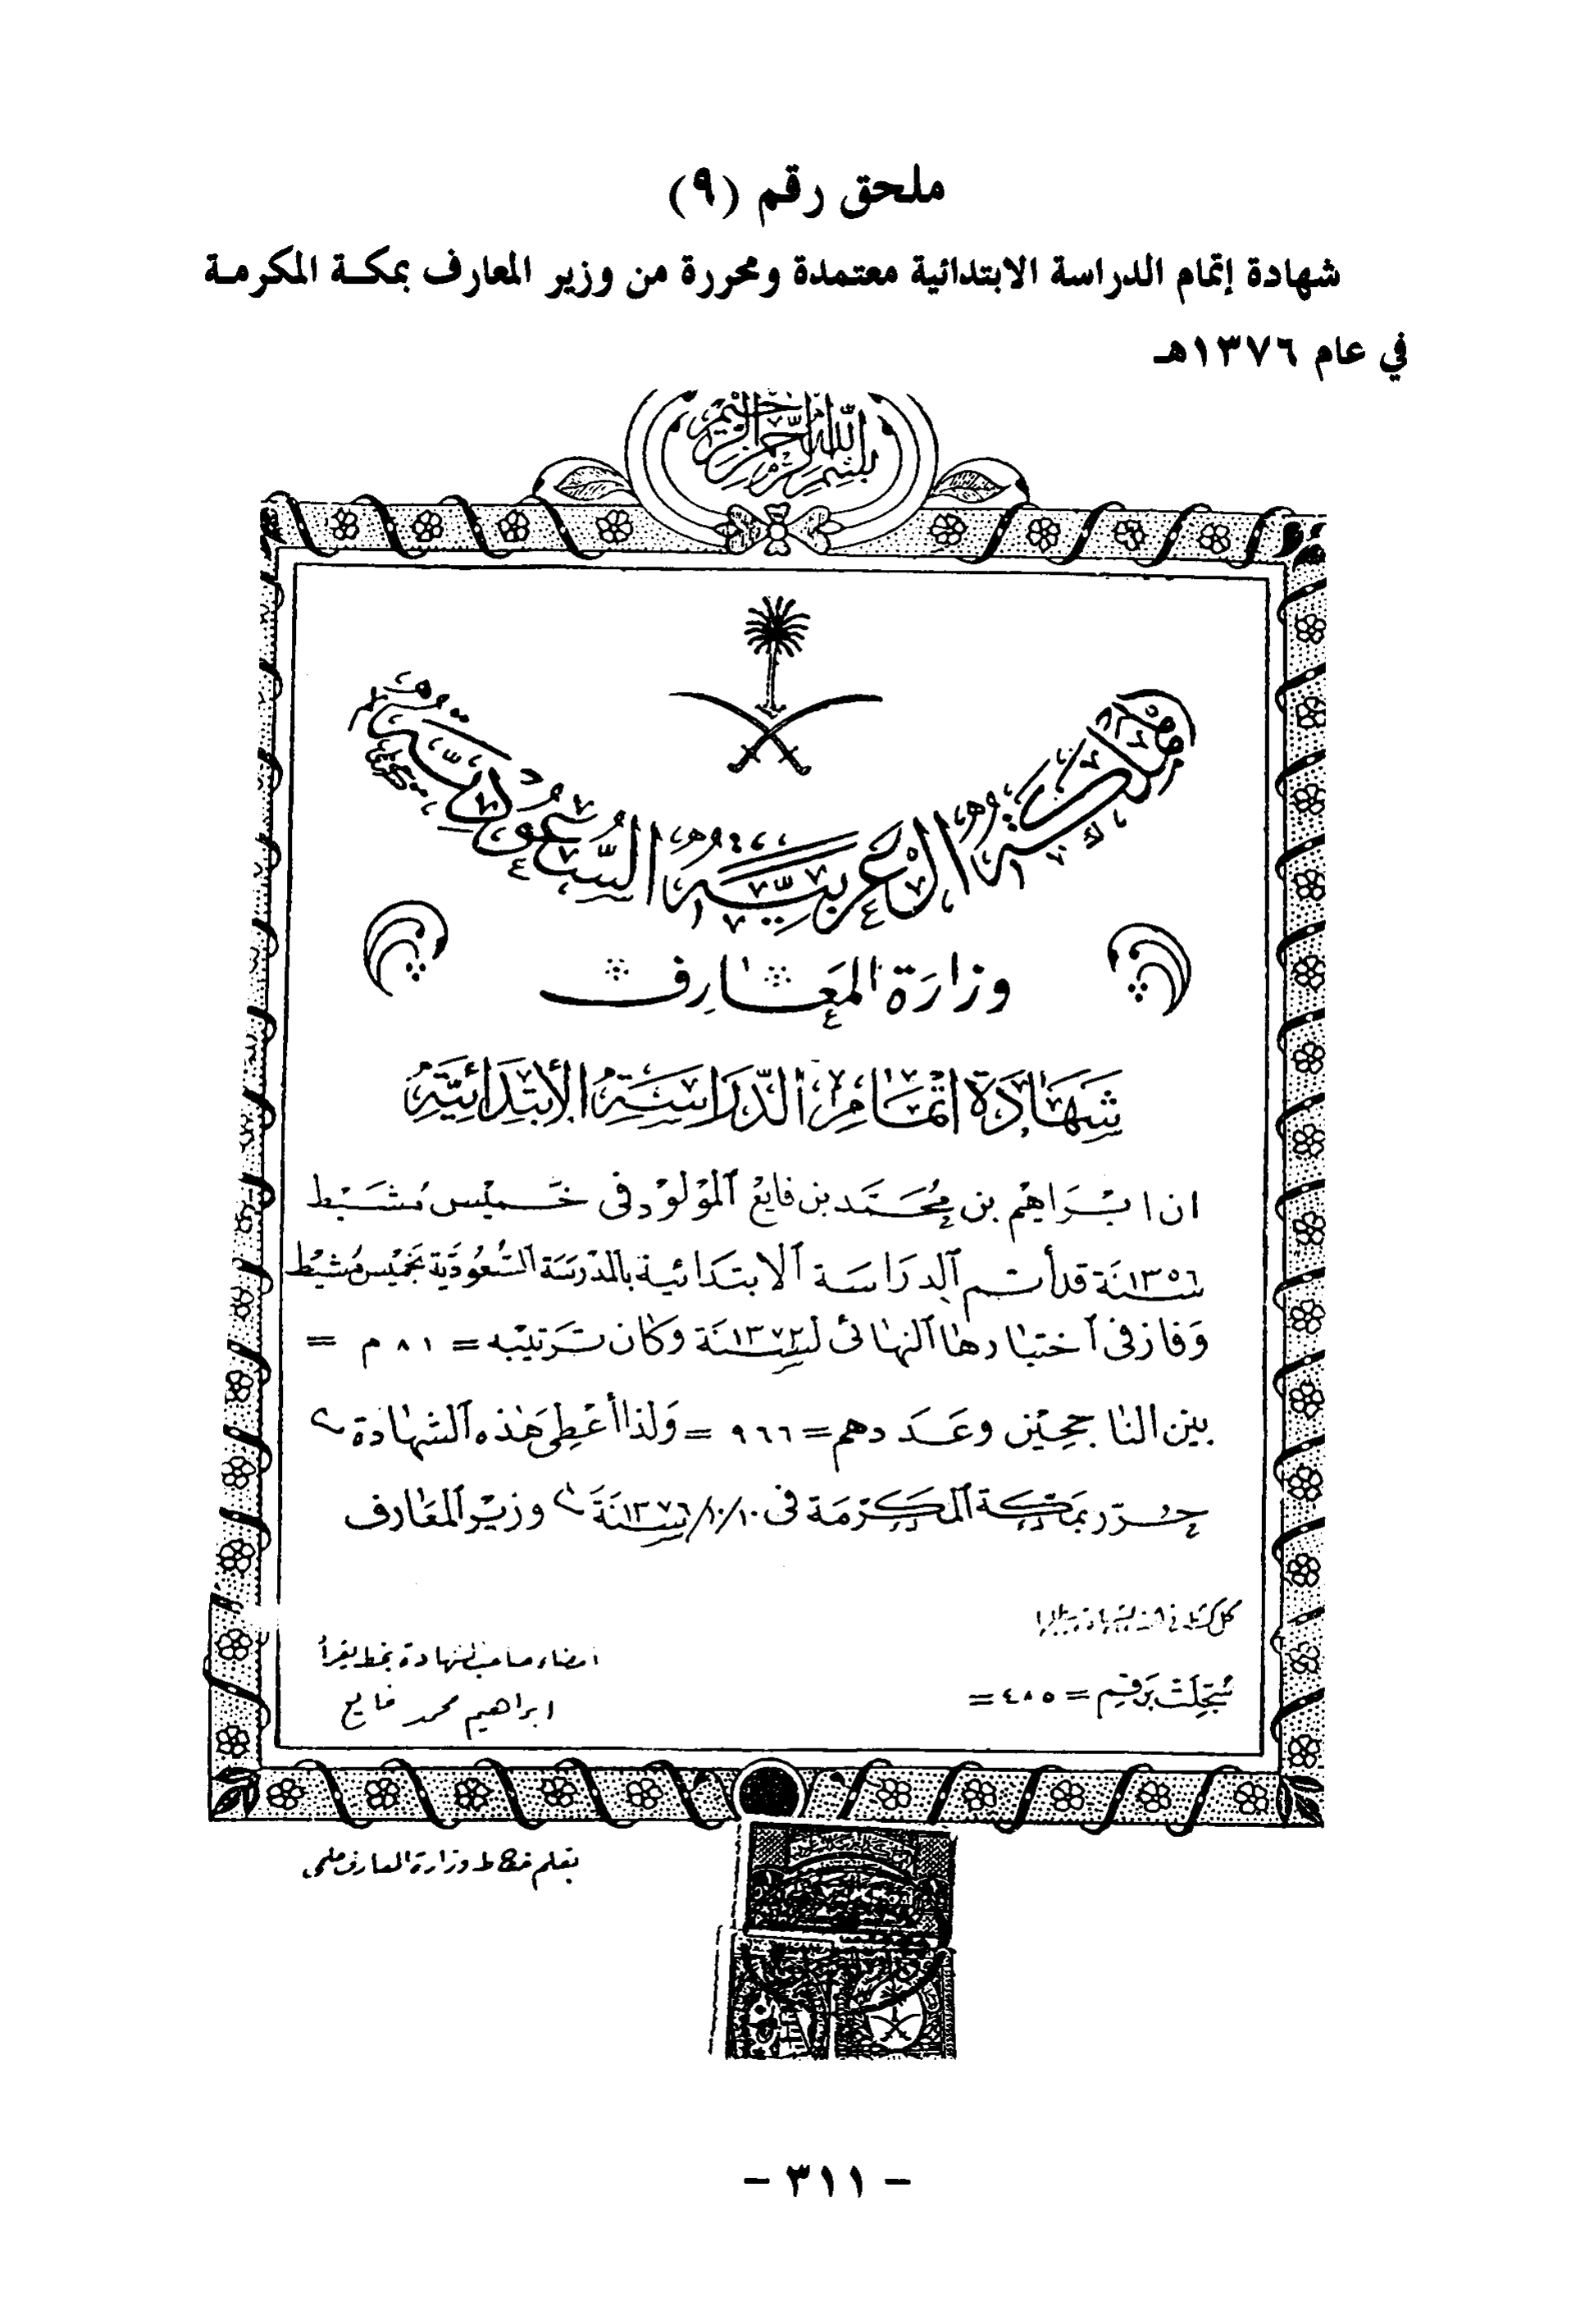 ملحق رقم (٩)
شهادة إتمام الدراسة الابتدائية معتمدة ومحررة من وزير المعارف بمكة المكرمة
في عام ١٣٧٦هـ
بسم الله الرحمن الرحيم
المملكة العربية السعودية
وزارة المعارف
شهادة اتمام الدراسة الابتدائية
ان ابراهيم بن محمد بن فايع المولود في خميس مشيط
سنة ١٣٥٦ قد أتم الدراسة الابتدائية بالمدرسة السعودية بخميس مشيط
وفاز في اختبارها النهائي لسنة ١٣٧٢ وكان ترتيبه = ٨١ م =
بين الناجحين وعددهم = ٩٦٦ = ولذا أعطي هذه الشهادة
حرر بمكة المكرمة في ١٠/١٠/ سنة ١٣٧٦ وزير المعارف
امضاء صاحب الشهادة بخط يقرأ
ابراهيم محمد فايع
سجلت برقم = ٤٨٥ =
بقلم خطاط وزارة المعارف حلمي
- ٣١١ -